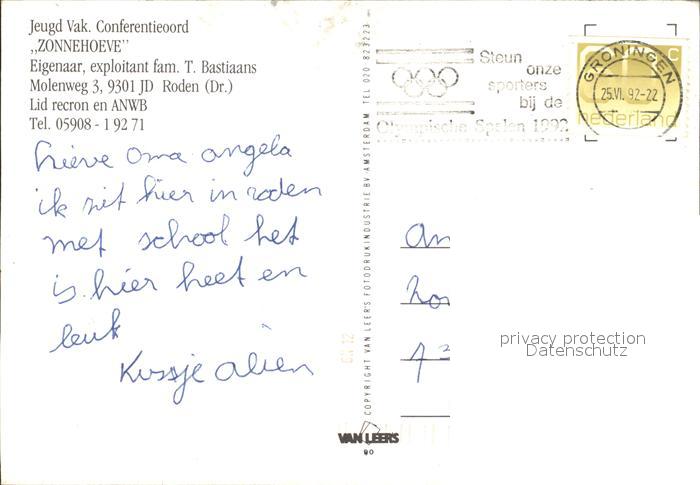 Jeugd Vak. Conferentieoord
,,ZONNEHOEVE''
Eigenaar, exploitant fam. T. Bastiaans
Molenweg 3, 9301 JD Roden (Dr.)
Lid recron en ANWB
Tel. 05908 - 1 92 71
Lieve Oma angela
ik zit hier in roden
met school het
is hier heet en
leuk
Kussje alien
COPYRIGHT VAN LEER'S FOTODRUKINDUSTRIE BV AMSTERDAM TEL 020 823223
VAN LEER'S
90
Steun
onze
sporters
bij de
Olympische Spelen 1992
GRONINGEN
25.VI. 92-22
c
nederland
An
privacy protection
Datenschutz